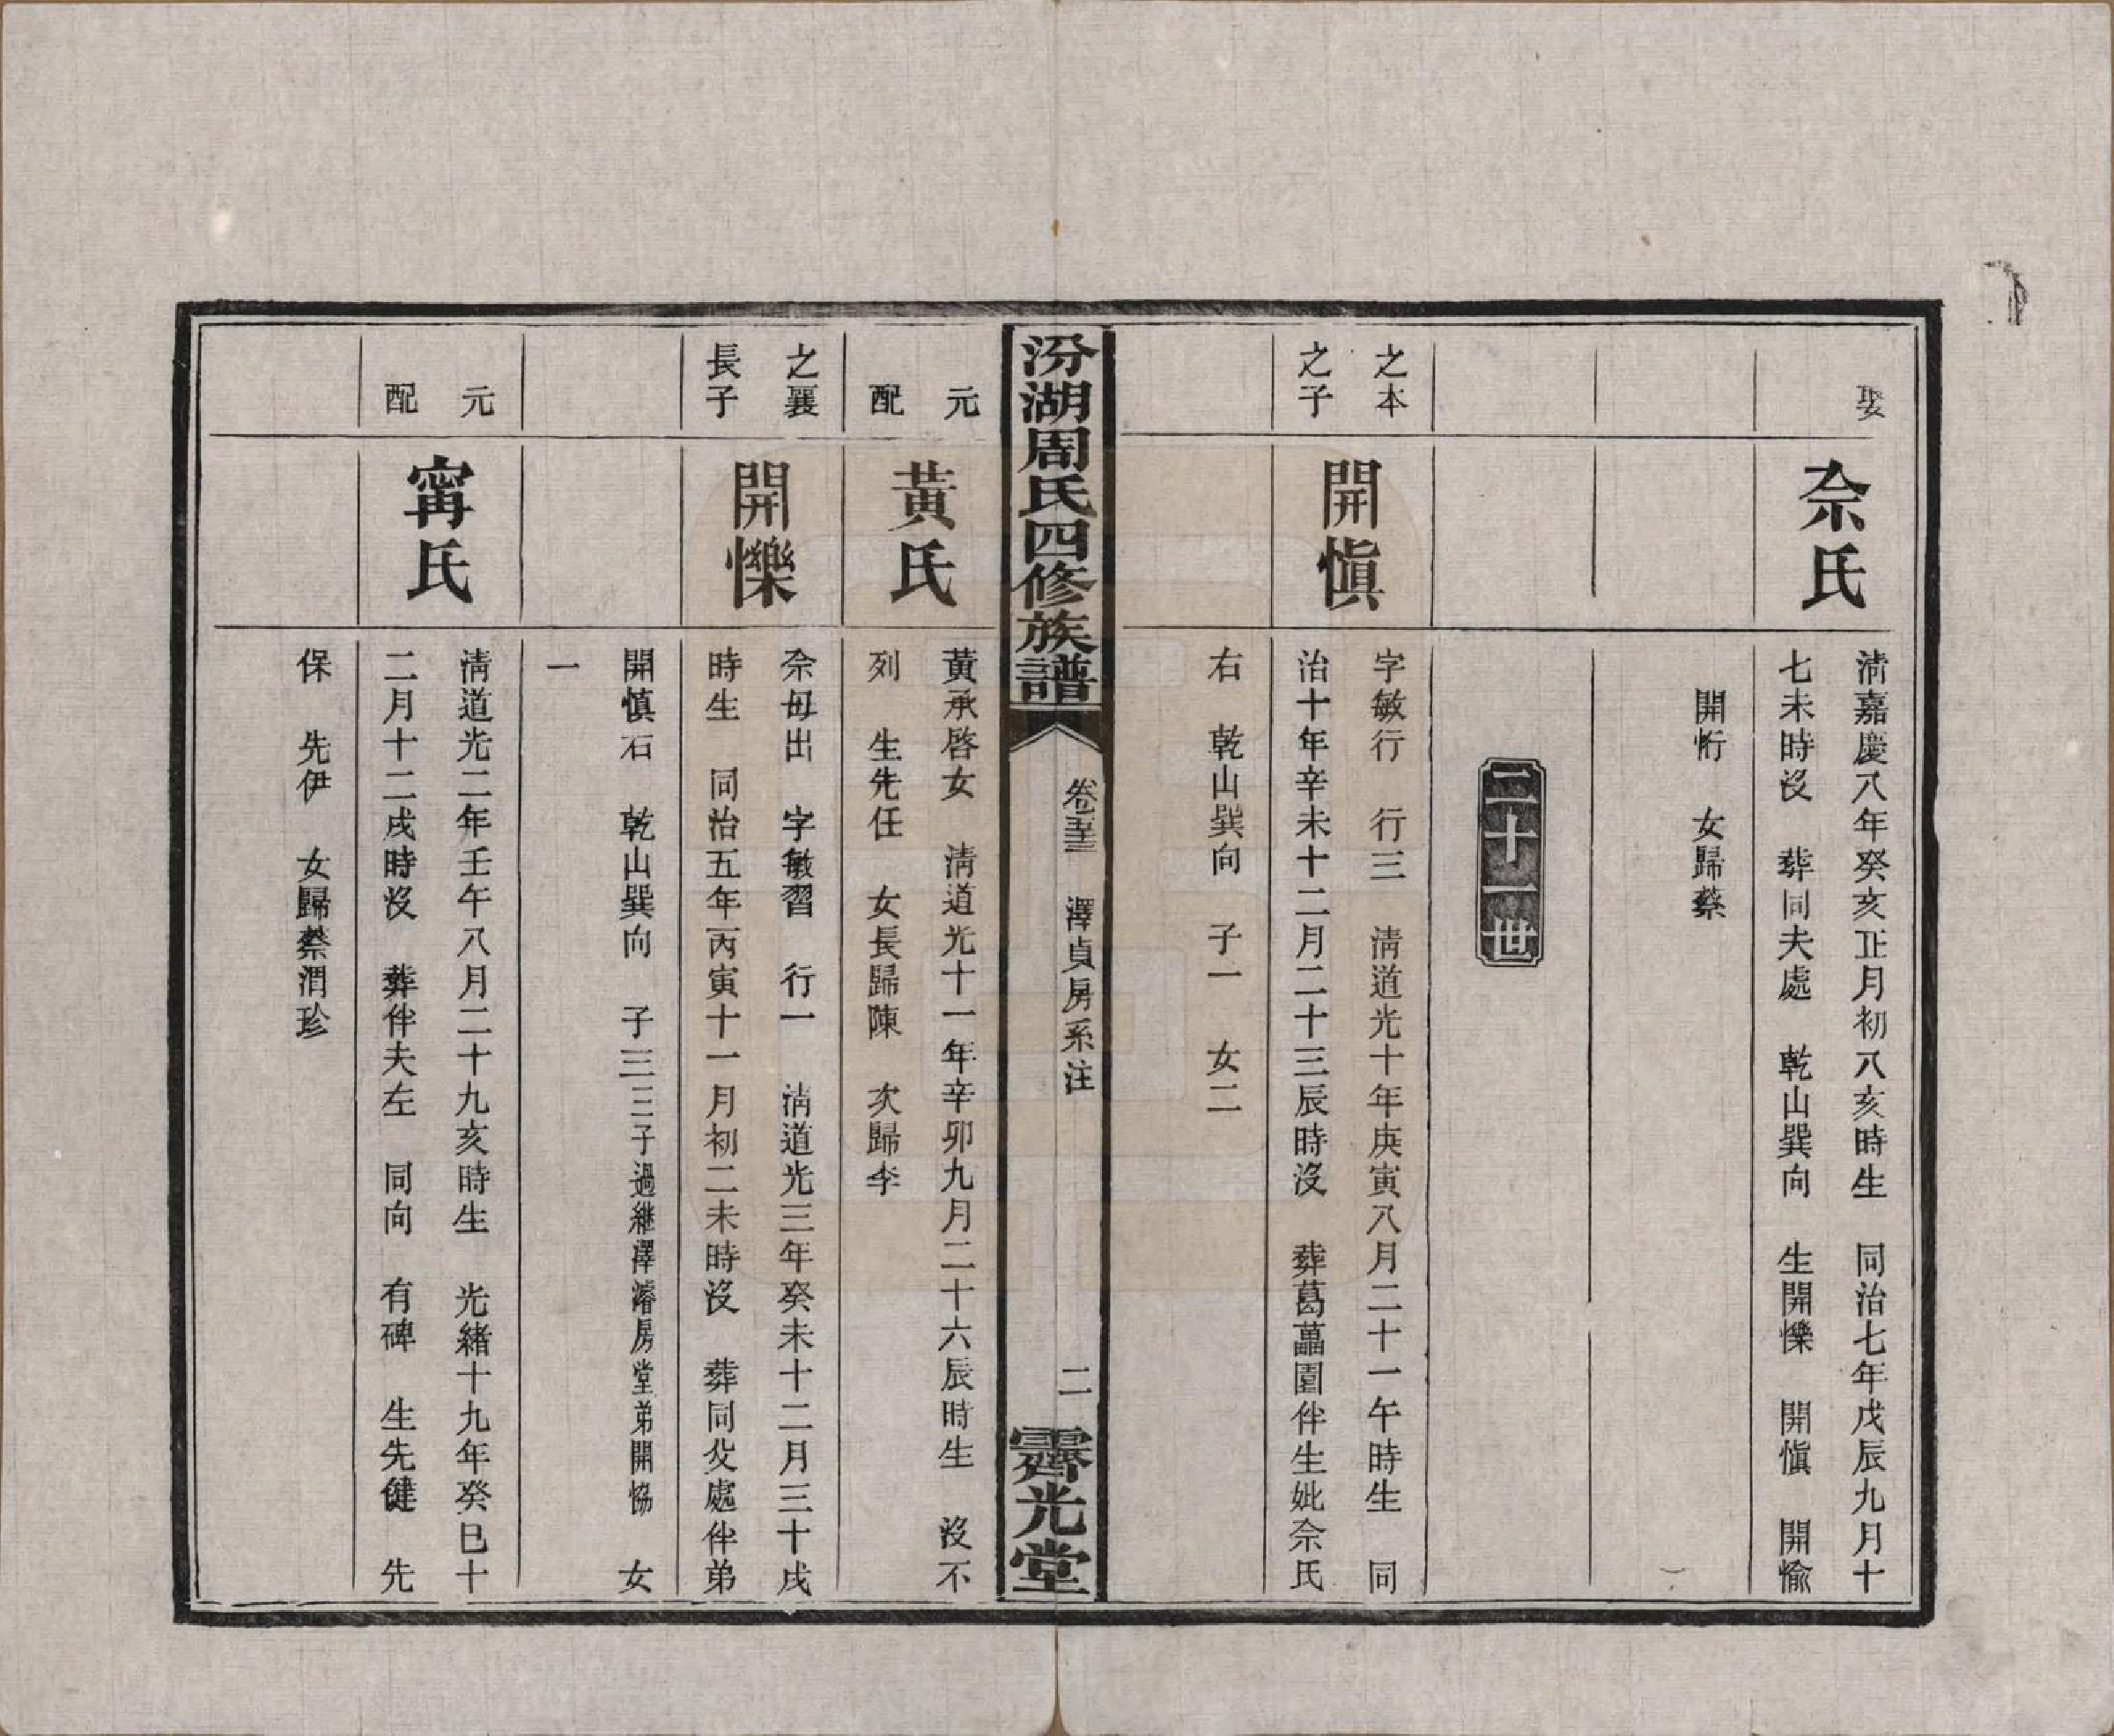 娶
佘氏
淸嘉慶八年癸亥正月初八亥時生　同治七年戊辰九月十
七未時沒　葬同夫處　乾山巽向　生開㦡　開愼　開愉
開㤚　女歸蔡
二十一世
之本
之子
開愼
字敏行　行三　淸道光十年庚寅八月二十一午時生　同
治十年辛未十二月二十三辰時沒　葬葛藟園伴生妣佘氏
右　乾山巽向　子一　女二
汾湖周氏四修族譜
卷　澤貞房系注
二
霽光堂
元
配
黃氏
黃承啓女　淸道光十一年辛卯九月二十六辰時生　沒不
列　生先任　女長歸陳　次歸李
之襄
長子
開㦡
佘毋出　字敏習　行一　淸道光三年癸未十二月三十戌
時生　同治五年丙寅十一月初二未時沒　葬同父處伴弟
開慎右　乾山巽向　子三三子過繼澤濬房堂弟開協　女
一
元
配
甯氏
淸道光二年壬午八月二十九亥時生　光緒十九年癸巳十
二月十二戌時沒　葬伴夫左　同向　有碑　生先健　先
保　先伊　女歸蔡潤珍